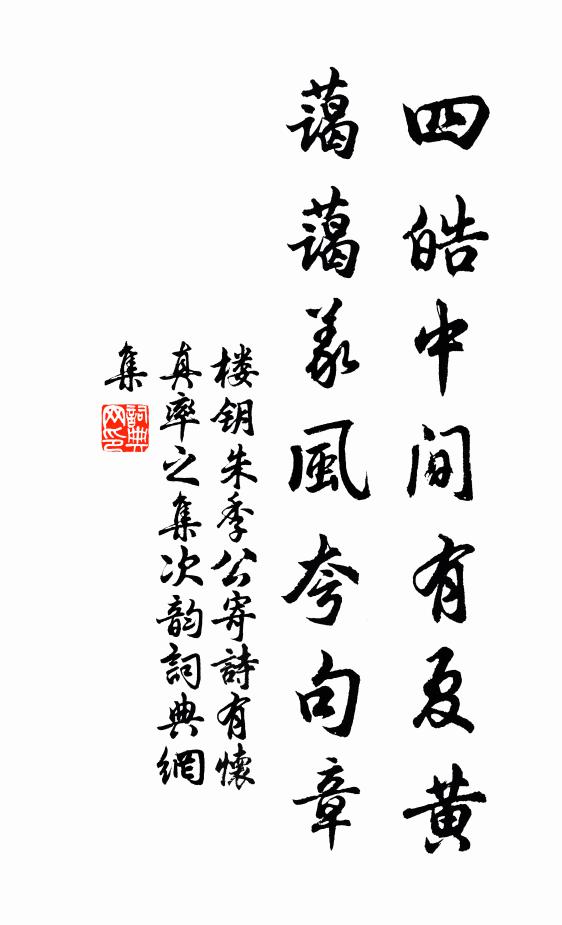 四皓中间有夏黄
蔼蔼義風夸句章
楼钥朱季公寄詩有懷
真率之集次韵詞典網
集
詞典
网印